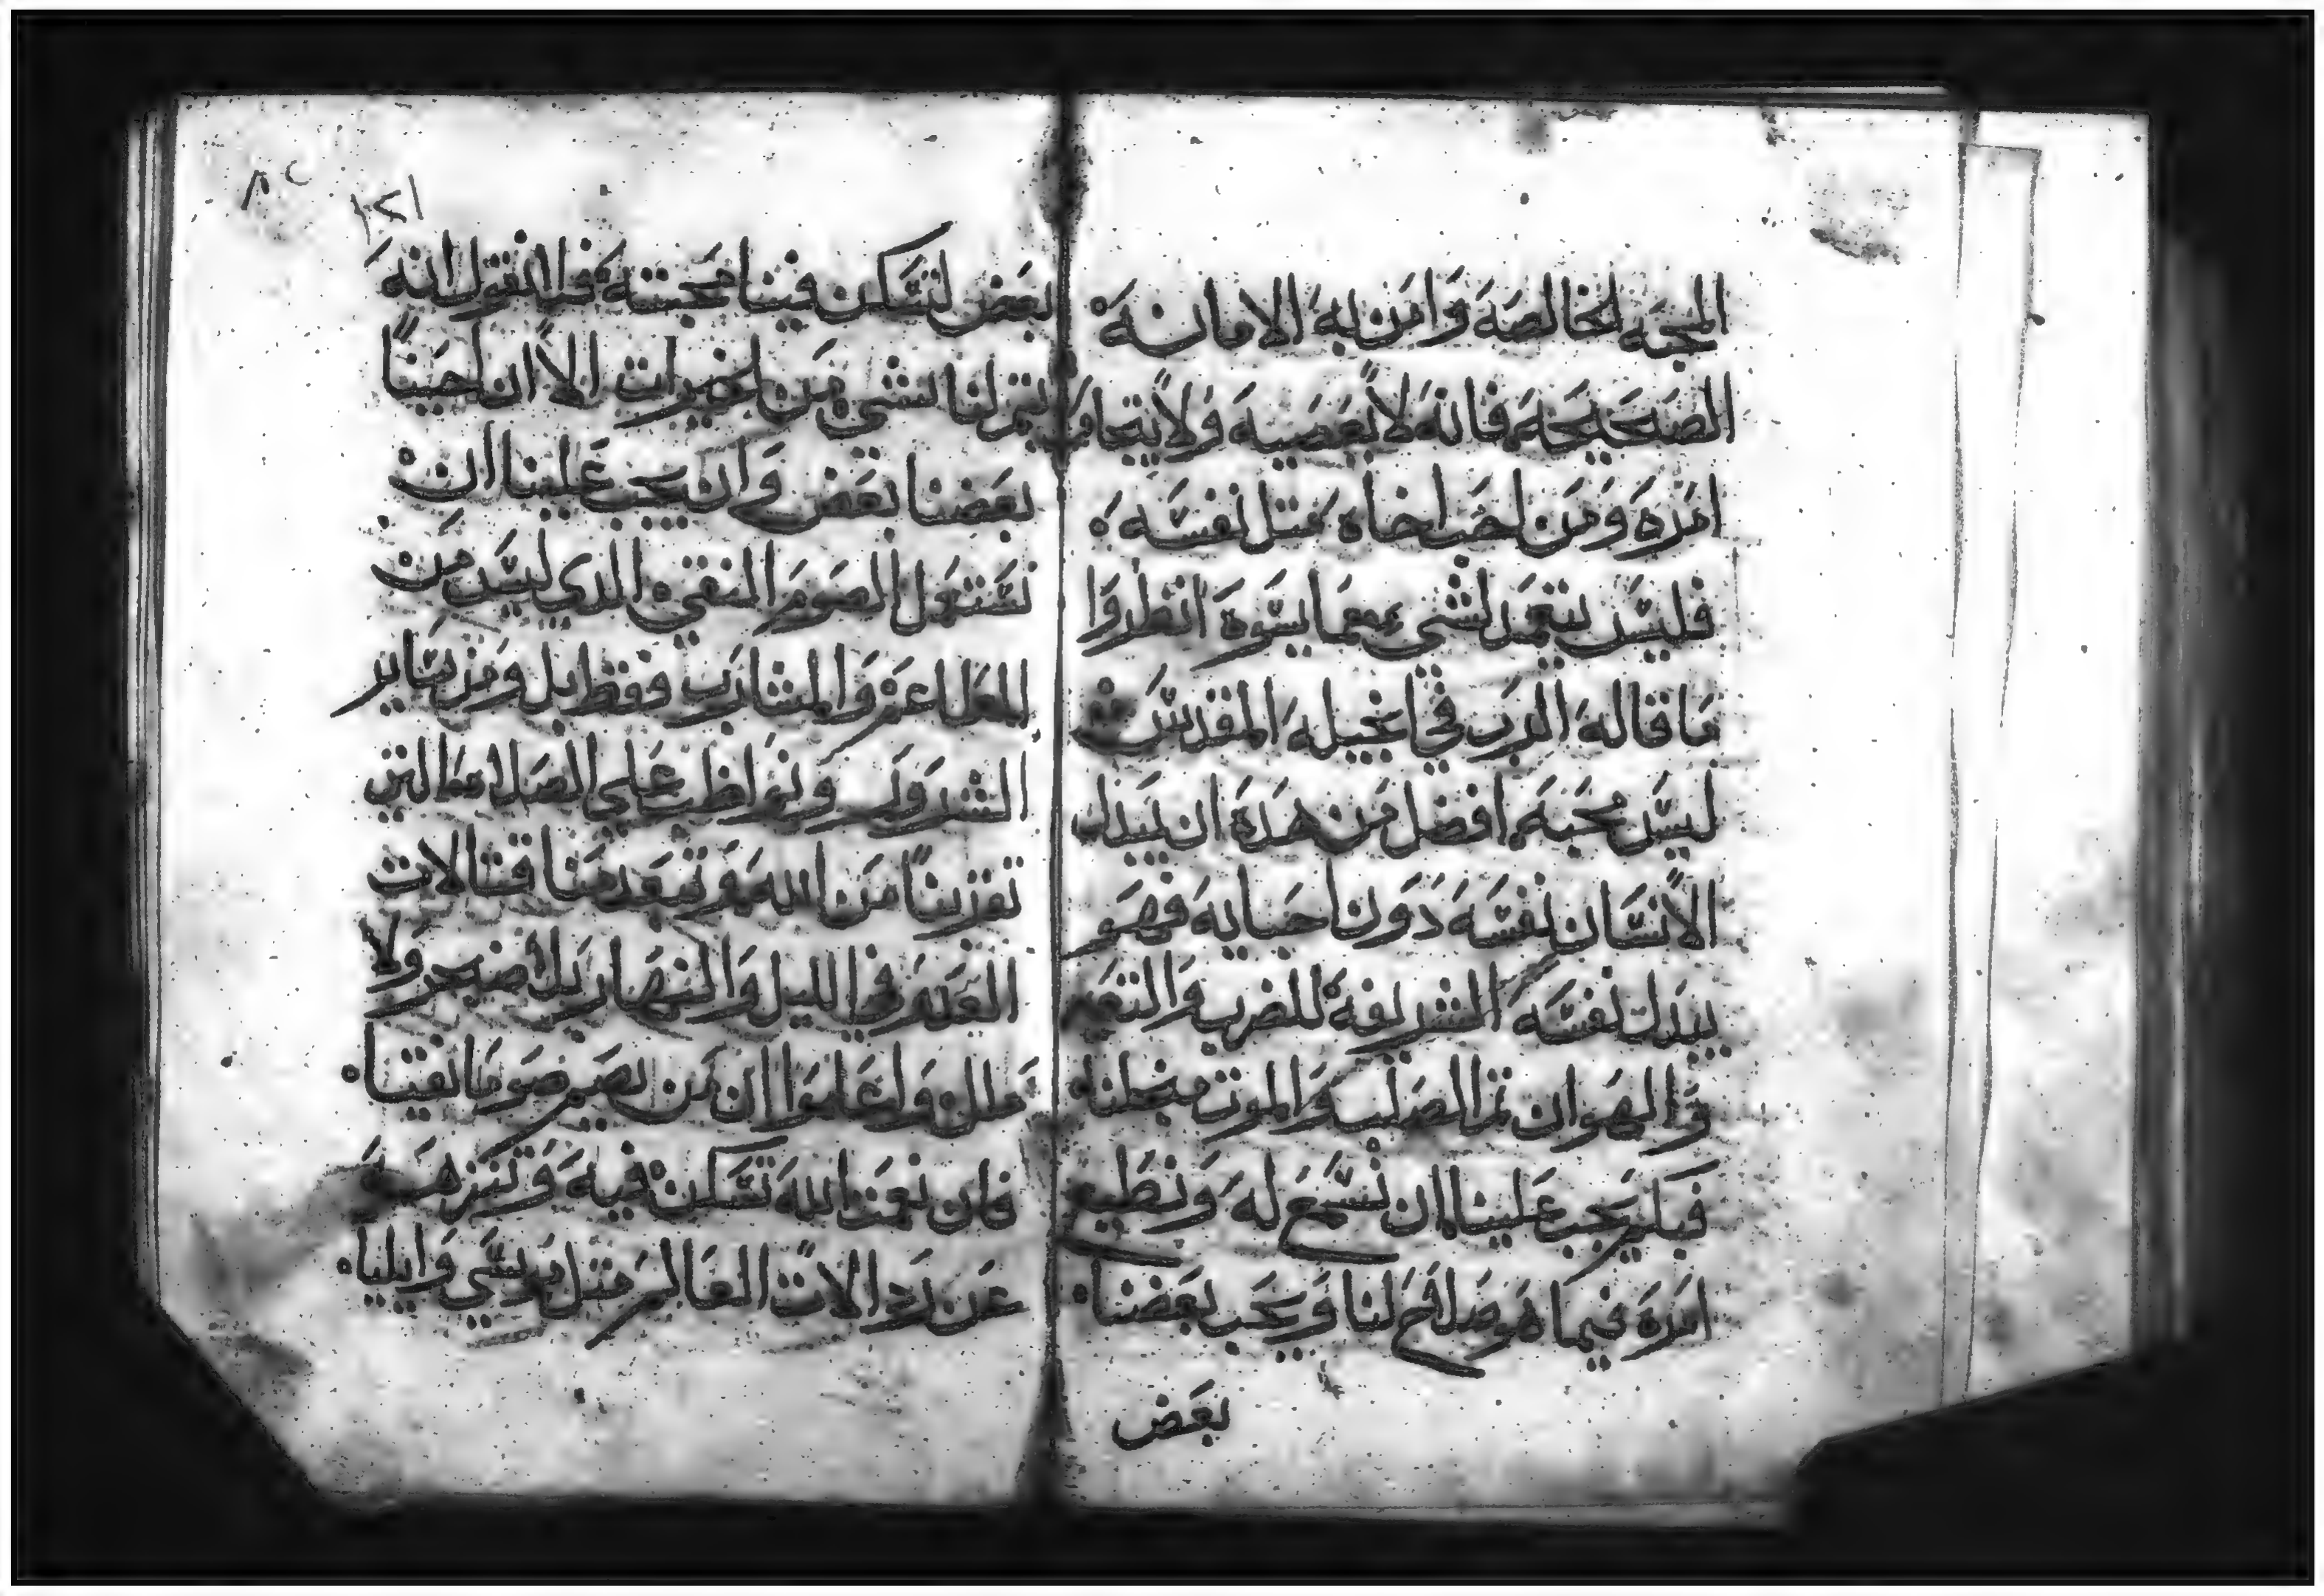 المحبه الخالصه وامن به الامانه
الصحيحه فانه لا يعصيه ولا يتجاف
امره ومن احب اخاه مثل نفسه
فليس يتعمد لشي مما يسوه انظروا
ما قاله الرب في انجيله المقدس
ليس محبه افضل من هده ان يبدل
الانسان نفسه دون احبايه فهو
يبدل نفسه الشريفه للضرب والتعيير
والهوان ثم الصلب والموت
يجب علينا ان نسمع له ونطيع
امره فيما هو صلاح لنا ويحب بعضنا
بعض
١٢١
٨٢
بعض لتسكن فينا محبته فيا لنقول انه
يتم لنا شي من الخيرات الا ان احبنا
بعضنا بعض وان يجب علينا ان
نستعمل الصوم النقي الدي ليس من
المطاعم والمشارب فقط بل ومن ساير
الشرور ونواظب على الصلاه التي
تقربنا من الله وتبعد منا قتالات
العدو في الليل والنهار بلا ضجر ولا
ملل واعلموا ان من يصم صوما نقيا
فان نعمة الله تسكن فيه وتنزهه
عن الات العالم مثل موسي وايليا